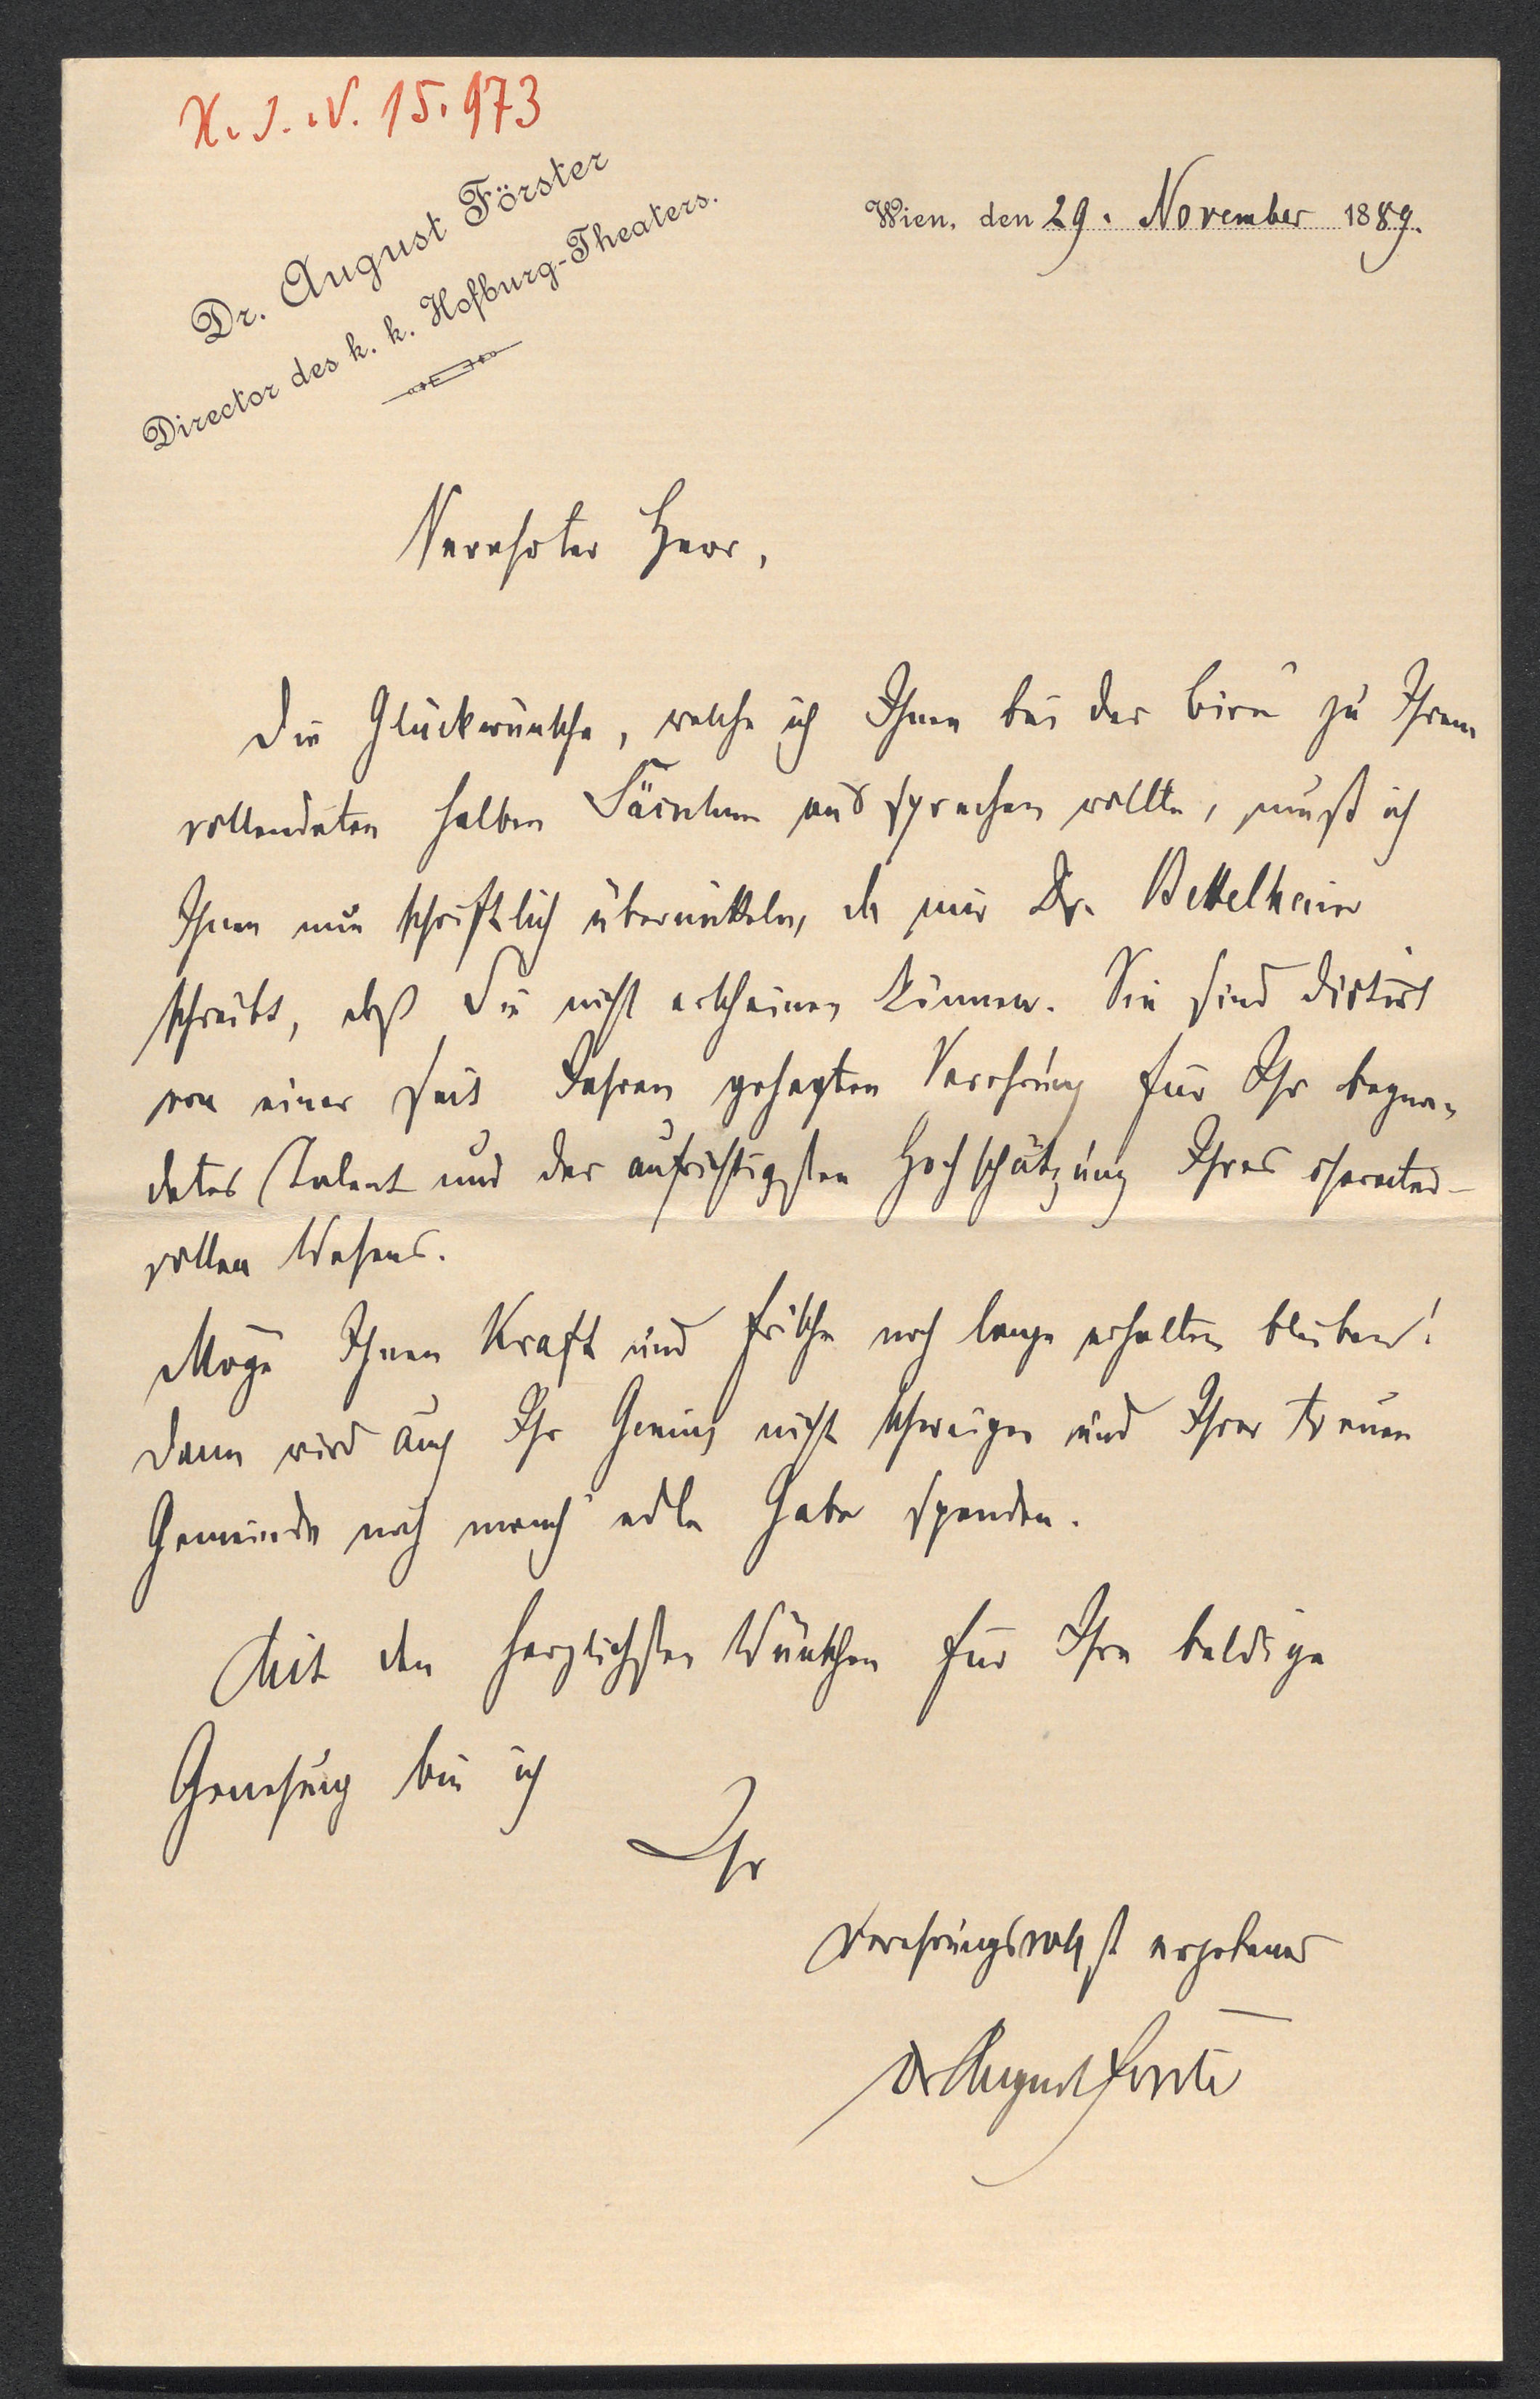 H. I. N. 15.973
Dr. August Förster
Director des k. k. Hofburg-Theaters.
Wien, den 29. November 1889.
Verehrter Herr,
Die Glückwünsche, welche ich Ihnen bei der
zu Ihrem
vollendeten halben Säculum aussprechen wollte, muß ich
Ihnen nun schriftlich übermitteln, da mir Dr. Bettelheim
schreibt, daß Sie nicht erscheinen können. Sie sind dictirt
von einer seit Jahren gehegten Verehrung für Ihr begna-
detes Talent und der aufrichtigsten Hochschätzung Ihres charakter-
vollen Wesens.
Möge Ihnen Kraft und Frische noch lange erhalten bleiben!
Dann wird auch Ihr Genius nicht schweigen und Ihrer treuen
Gemeinde noch manch' edle Gabe spenden.
Mit den herzlichsten Wünschen für Ihre baldige
Genesung bin ich
Ihr
verehrungsvollst ergebener
Dr August Förster